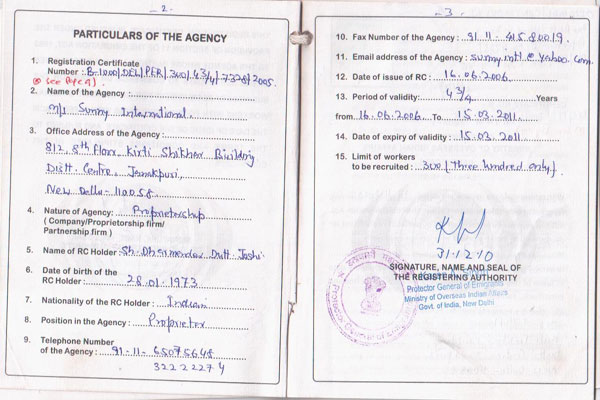 - 2 -
PARTICULARS OF THE AGENCY
1. Registration Certificate
Number : B-1000/DEL/PER/300/4 3/4/7328/2005.
See Page 9
2. Name of the Agency :
M/s Sunny International.
3. Office Address of the Agency :
812, 8th Floor, Kirti Shikhar Building
Distt. Centre, Janakpuri,
New Delhi - 110058.
4. Nature of Agency: Proprietorship
( Company/Proprietorship firm/
Partnership firm )
5. Name of RC Holder : Sh. Dharmendar Dutt Joshi.
6. Date of birth of the
RC Holder : 28.01.1973
7. Nationality of the RC Holder : Indian
8. Position in the Agency : Proprietor
9. Telephone Number
of the Agency : 91-11-65075648
32222274
- 3 -
10. Fax Number of the Agency : 91-11-41580019.
11. Email address of the Agency : sunny.intl@yahoo.com
12. Date of issue of RC : 16.06.2006.
13. Period of validity: 4 3/4 Years
from 16.06.2006 To 15.03.2011.
14. Date of expiry of validity : 15.03.2011.
15. Limit of workers
to be recruited : 300 (Three hundred only).
31.12.10
SIGNATURE, NAME AND SEAL OF
THE REGISTERING AUTHORITY
Protector General of Emigrants
Ministry of Overseas Indian Affairs
Govt. of India, New Delhi